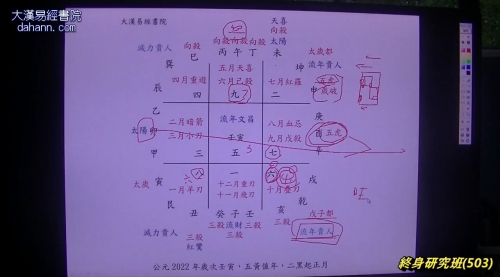 大漢易經書院
dahann.com
大漢易經書院
天喜
向殺
減力貴人
向殺向殺向殺
太陽
太歲部
巳
丙午丁
未
流年貴人
巽
五月天喜
坤
四月重遊
六月己殺
七月紅羅
五虎
辰
四
九
二
申
歲破
乙
庚
二月暗箭
流年文昌
八月血忌
太陽
卯
三月小刀
壬寅
九月戊殺
酉
五虎
甲
三
五
七
辛
太歲
寅
八
一
六
戌
一月羊刃
十二月重刃
十月重刃
十一月飛刃
艮
乾
丑
癸子壬
亥
戊子都
減力貴人
三殺
三殺流財三殺
三殺
流年貴人
紅鸞
三殺
公元 2022 年歲次壬寅,五黃值年,二黑起正月
終身研究班(503)